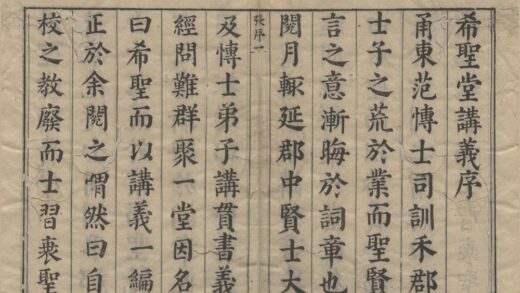 希聖堂講義序
甬東范博士司訓禾郡
士子之荒於業而聖賢
言之意漸晦於詞章也
閱月輙延郡中賢士大
張序一
及博士弟子講貫書義
經問難群聚一堂因名
曰希聖而以講義一編
正於余閱之喟然曰自
校之教廢而士習衰聖